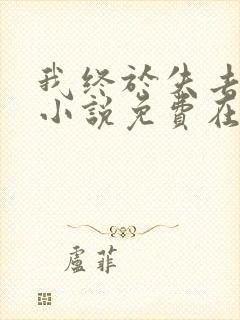 我终於失去
小說免費在
盧菲